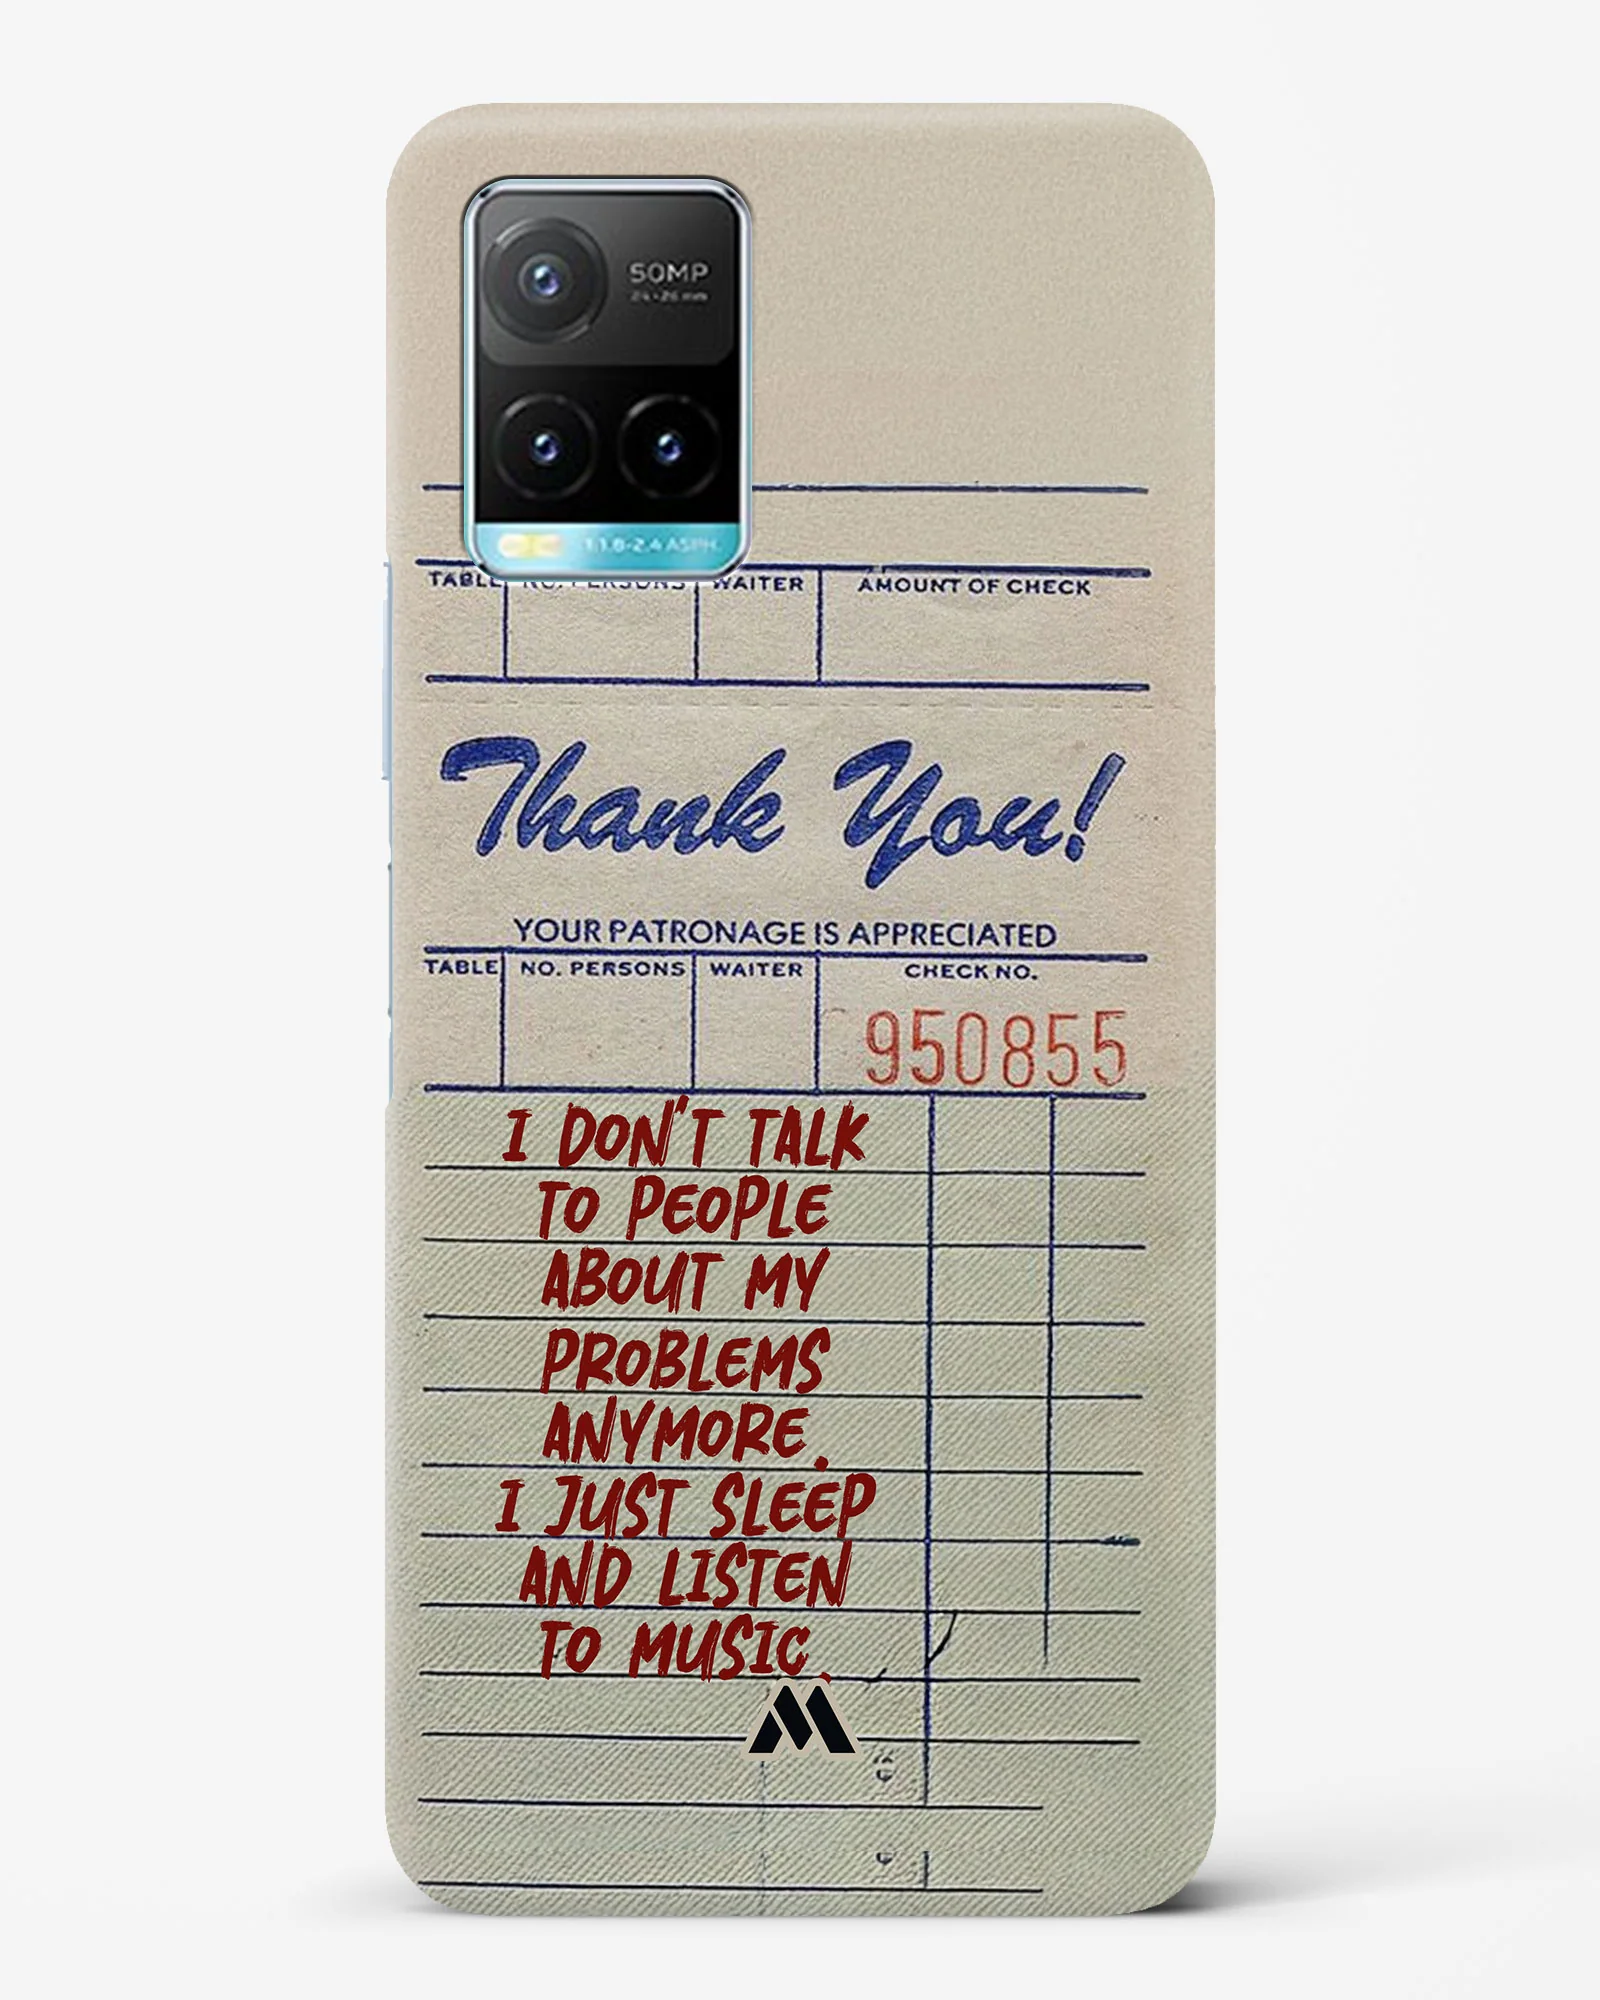 50MP
24-26 mm
1:1.8-2.4 ASPH.
TABLE NO. PERSONS WAITER AMOUNT OF CHECK
Thank You!
YOUR PATRONAGE IS APPRECIATED
TABLE NO. PERSONS WAITER CHECK NO.
950855
I DON'T TALK
TO PEOPLE
ABOUT MY
PROBLEMS
ANYMORE.
I JUST SLEEP
AND LISTEN
TO MUSIC.